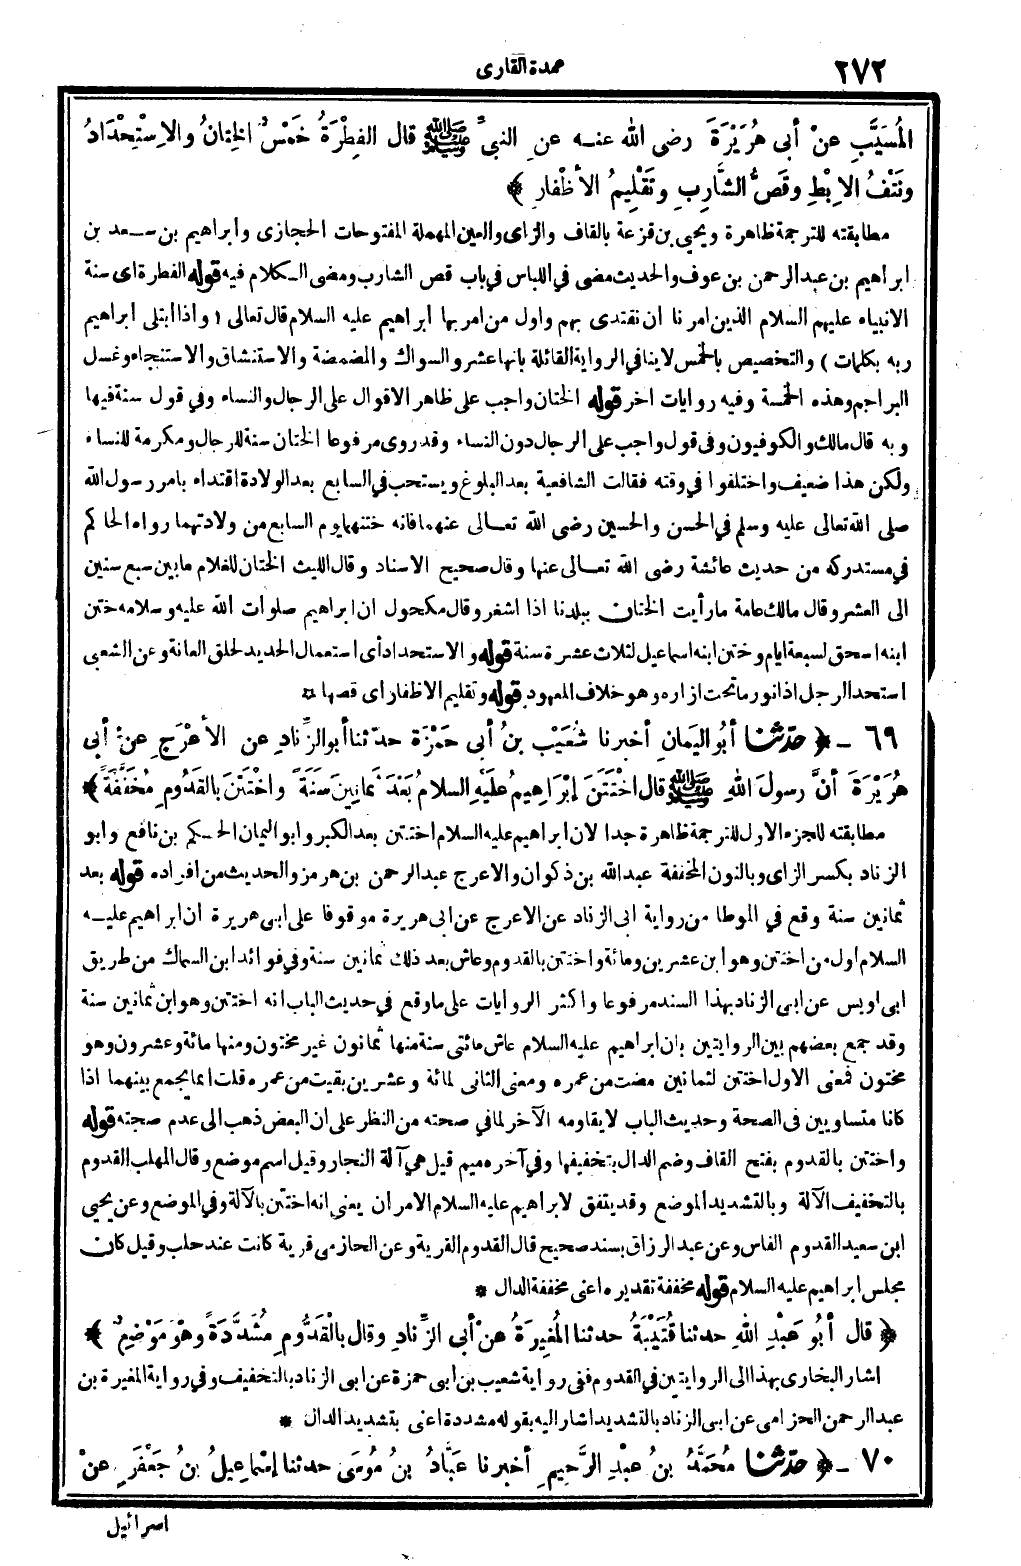 ٢٧٢
عمدة القارى
المُسَيَّبِ عنْ أبى هُرَيْرَةَ رضى الله عنـه عن النبىّ ﷺ قال الفِطْرَةُ خَمْسٌ الخِتانُ والاِسْتِحْدَادُ
ونَتْفُ الاِبْطِ وقَصُّ الشَّارِبِ وتَقْلِيمُ الأظْفارِ ﴾
مطابقته للترجمة ظاهرة ويحيى بن قزعة بالقاف والزاى والعين المهملة المفتوحات الحجازى وابراهيم بن سعد بن
ابراهيم بن عبد الرحمن بن عوف والحديث مضى فى اللباس فى باب قص الشارب ومضى الكلام فيه قوله الفطرة اى سنة
الانبياء عليهم السلام الذين امرنا ان نقتدى بهم واول من امر بها ابراهيم عليه السلام قال تعالى ( واذا ابتلى ابراهيم
ربه بكلمات ) والتخصيص بالخمس لاينافى الرواية القائلة بانها عشر والسواك والمضمضة والاستنشاق والاستنجاء وغسل
البراجم وهذه الخمسة وفيه روايات اخر قوله الختان واجب على ظاهر الاقوال على الرجال والنساء وفى قول سنة فيها
وبه قال مالك والكوفيون وفى قول واجب على الرجال دون النساء وقد روى مرفوعا الختان سنة للرجال ومكرمة للنساء
ولكن هذا ضعيف واختلفوا فى وقته فقالت الشافعية بعد البلوغ ويستحب فى السابع بعد الولادة اقتداء بامر رسول الله
صلى الله تعالى عليه وسلم فى الحسن والحسين رضى الله تعـالى عنهما فانه ختنهما يوم السابع من ولادتهما رواه الحاكم
فى مستدركه من حديث عائشة رضى الله تعـالى عنها وقال صحيح الاسناد وقال الليث الختان للغلام مابين سبع سنين
الى العشر وقال مالك عامة مارأيت الختان ببلدنا اذا اشغر وقال مكحول ان ابراهيم صلوات الله عليه وسلامه ختن
ابنه اسحق لسبعة ايام وختن ابنه اسماعيل لثلاث عشرة سنة قوله والاستحداد أى استعمال الحديد لحلق العانة وعن الشعبى
استحد الرجل اذا نور ماتحت ازاره وهو خلاف المعهود قوله وتقليم الاظفار اى قصها ¤
٦٩ - ﴿ حدّثنا أبُو اليَمانِ أخبرنا شُعَيْبُ بنُ أبى حَمْزَةَ حدثنا أبو الزِّنادِ عن الأعْرَجِ عنْ أبى
هُرَيْرَةَ أنَّ رسولَ اللهِ ﷺ قال اخْتَتَنَ إبْرَاهِيمُ عَلَيْهِ السلامُ بَعْدَ ثَمانِينَ سَنَةً واخْتَتَنَ بالقَدُومِ مُخَفَّفَةً ﴾
مطابقته للجزء الاول للترجمة ظاهرة جدا لان ابراهيم عليه السلام اختتن بعد الكبر وابو اليمان الحـكم بن نافع وابو
الزناد بكسر الزاى وبالنون المخففة عبد الله بن ذكوان والاعرج عبد الرحمن بن هرمز والحديث من افراده قوله بعد
ثمانين سنة وقع فى الموطا من رواية ابى الزناد عن الاعرج عن ابى هريرة موقوفا على ابى هريرة ان ابراهيم عليـه
السلام اول من اختتن وهو ابن عشرين ومائة واختتن بالقدوم وعاش بعد ذلك ثمانين سنة وفى فوائد ابن السماك من طريق
ابى اويس عن ابى الزناد بهذا السند مرفوعا واكثر الروايات على ماوقع فى حديث الباب انه اختتن وهو ابن ثمانين سنة
وقد جمع بعضهم بين الروايتين بان ابراهيم عليه السلام عاش مائتى سنة منها ثمانون غير مختون ومنها مائة وعشرون وهو
مختون فمعنى الاول اختتن لثمانين مضت من عمره ومعنى الثانى لمائة وعشرين بقيت من عمره قلت انما يجمع بينهما اذا
كانا متساويين فى الصحة وحديث الباب لايقاومه الآخر لما فى صحته من النظر على ان البعض ذهب الى عدم صحته قوله
واختتن بالقدوم بفتح القاف وضم الدال بتخفيفها وفى آخره ميم قيل هى آلة النجار وقيل اسم موضع وقال المهلب القدوم
بالتخفيف الآلة وبالتشديد الموضع وقد يتفق لابراهيم عليه السلام الامران يعنى انه اختتن بالآلة وفى الموضع وعن يحيى
ابن سعيد القدوم الفاس وعن عبد الرزاق بسند صحيح قال القدوم القرية وعن الحازمى قرية كانت عند حلب وقيل كان
مجلس ابراهيم عليه السلام قوله مخففة تقديره اعنى مخففة الدال *
﴿ قال أبُو عَبْدِ اللهِ حدثنا قُتَيْبَةُ حدثنا المُغِيرَةُ عنْ أبى الزِّنادِ وقال بالْقَدُّومِ مُشَدَّدَةً وهْوَ مَوْضِعٌ ﴾
اشار البخارى بهذا الى الروايتين فى القدوم ففى رواية شعيب بن ابى حمزة عن ابى الزناد بالتخفيف وفى رواية المغيرة بن
عبد الرحمن الحزامى عن ابى الزناد بالتشديد اشار اليه بقوله مشددة اعنى بتشديد الدال *
٧٠ - ﴿ حدّثنا مُحَمَّدُ بنُ عبْدِ الرَّحِيمِ أخبرنا عَبَّادُ بنُ مُوسَى حدثنا إسْماعِيلُ بنُ جَعْفَرٍ عنْ
اسرائيل